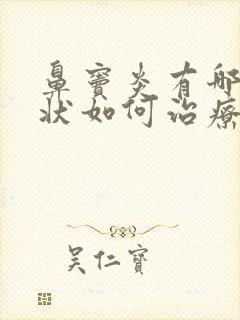 鼻窦炎有哪
状如何治疗
吴仁宝